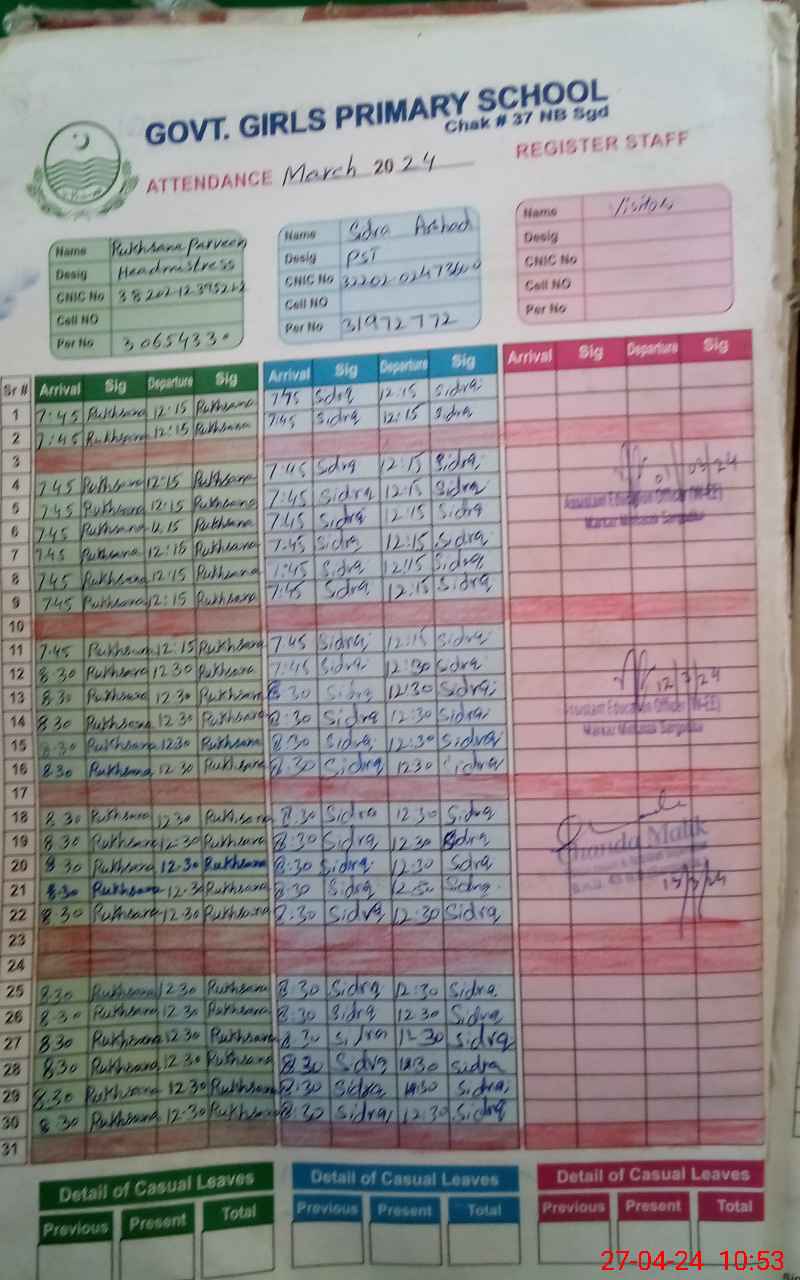 GOVT. GIRLS PRIMARY SCHOOL
Chak # 37 NB Sgd
ATTENDANCE March 2024 REGISTER STAFF
Name Rukhsana Parveen
Desig Headmistress
CNIC No
Cell NO
Per No 30654330
Name Sidra Arshad
Desig PST
CNIC No
Cell NO
Per No 31972772
Name Visitors
Desig
CNIC No
Cell NO
Per No
Sr # Arrival Sig Departure Sig Arrival Sig Departure Sig Arrival Sig Departure Sig
1 7:45 Rukhsana 12:15 Rukhsana 7:45 Sidra 12:15 Sidra
2 7:45 Rukhsana 12:15 Rukhsana 7:45 Sidra 12:15 Sidra
3
4 7:45 Rukhsana 12:15 Rukhsana 7:45 Sidra 12:15 Sidra 01/03/24
5 7:45 Rukhsana 12:15 Rukhsana 7:45 Sidra 12:15 Sidra Assistant Education Officer (W-EE)
6 7:45 Rukhsana 12:15 Rukhsana 7:45 Sidra 12:15 Sidra Markaz
7 7:45 Rukhsana 12:15 Rukhsana 7:45 Sidra 12:15 Sidra
8 7:45 Rukhsana 12:15 Rukhsana 7:45 Sidra 12:15 Sidra
9 7:45 Rukhsana 12:15 Rukhsana 7:45 Sidra 12:15 Sidra
10
11 7:45 Rukhsana 12:15 Rukhsana 7:45 Sidra 12:15 Sidra
12 8:30 Rukhsana 12:30 Rukhsana 7:45 Sidra 12:30 Sidra 12/3/24
13 8:30 Rukhsana 12:30 Rukhsana 8:30 Sidra 12:30 Sidra Assistant Education Officer (W-EE)
14 8:30 Rukhsana 12:30 Rukhsana 8:30 Sidra 12:30 Sidra Markaz
15 8:30 Rukhsana 12:30 Rukhsana 8:30 Sidra 12:30 Sidra
16 8:30 Rukhsana 12:30 Rukhsana 8:30 Sidra 12:30 Sidra
17
18 8:30 Rukhsana 12:30 Rukhsana 8:30 Sidra 12:30 Sidra
19 8:30 Rukhsana 12:30 Rukhsana 8:30 Sidra 12:30 Sidra Chanda Malik
20 8:30 Rukhsana 12:30 Rukhsana 8:30 Sidra 12:30 Sidra
21 8:30 Rukhsana 12:30 Rukhsana 8:30 Sidra 12:30 Sidra
22 8:30 Rukhsana 12:30 Rukhsana 8:30 Sidra 12:30 Sidra
23
24
25 8:30 Rukhsana 12:30 Rukhsana 8:30 Sidra 12:30 Sidra
26 8:30 Rukhsana 12:30 Rukhsana 8:30 Sidra 12:30 Sidra
27 8:30 Rukhsana 12:30 Rukhsana 8:30 Sidra 12:30 Sidra
28 8:30 Rukhsana 12:30 Rukhsana 8:30 Sidra 12:30 Sidra
29 8:30 Rukhsana 12:30 Rukhsana 8:30 Sidra 12:30 Sidra
30 8:30 Rukhsana 12:30 Rukhsana 8:30 Sidra 12:30 Sidra
31
Detail of Casual Leaves Detail of Casual Leaves Detail of Casual Leaves
Previous Present Total Previous Present Total Previous Present Total
27-04-24 10:53